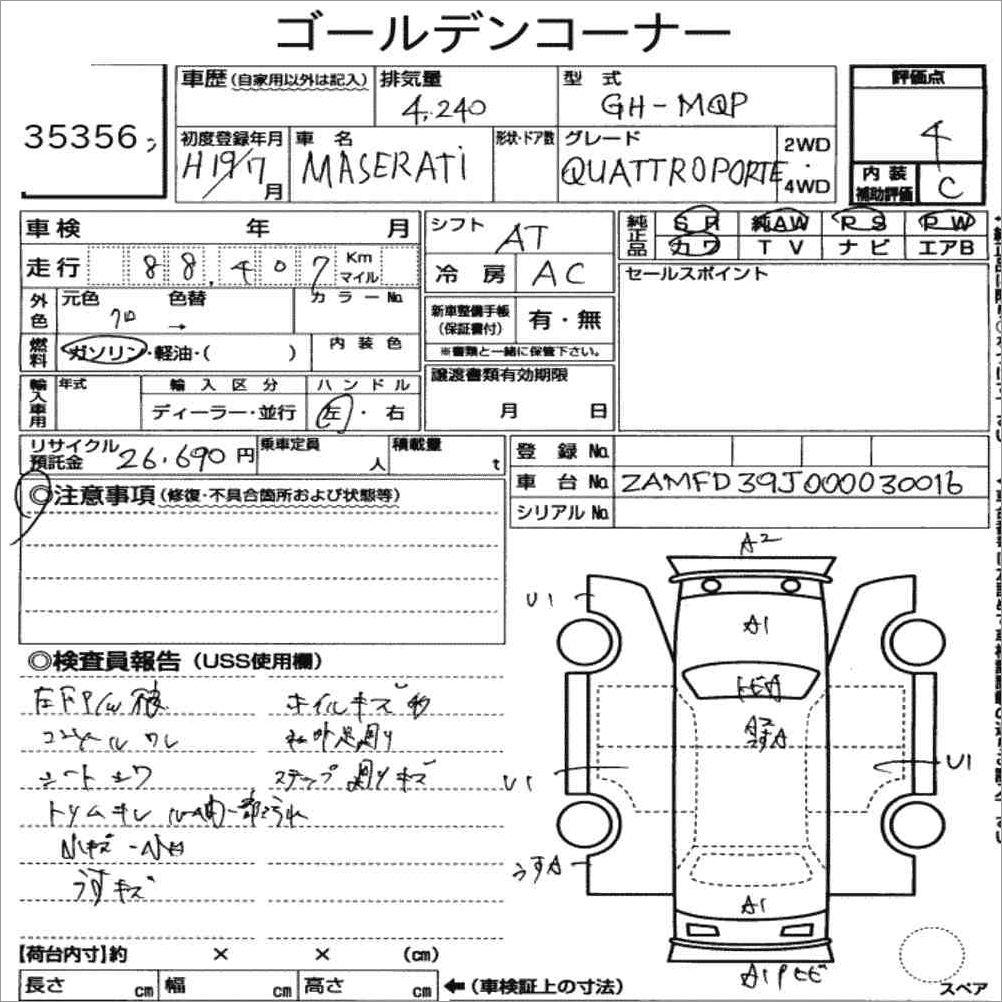 ゴールデンコーナー
35356
車歴(自家用以外は記入)
排気量
4,240
型式
GH-MQP
評価点
4
初度登録年月
H19/7月
車名
MASERATi
形状・ドア数
グレード
QUATTROPORTE
2WD
・
4WD
内装
補助評価
C
車検 年 月
走行 88,407 Km マイル
シフト
AT
純正品
SR 純AW RS PW
カワ TV ナビ エアB
冷房 AC
セールスポイント
外色
元色
色替
カラーNo.
クロ →
新車整備手帳
(保証書付)
有・無
※書類と一緒に保管下さい。
燃料
ガソリン・軽油・( )
内装色
輸入車用
年式
輸入区分
ハンドル
ディーラー・並行
左・右
譲渡書類有効期限
月 日
リサイクル
預託金
26.690円
乗車定員
人
積載量
t
登録No.
車台No. ZAMFD39J000030016
シリアルNo.
◎注意事項(修復・不具合箇所および状態等)
A2
U1
A1
A2
うすA
U1
U1
うすA
A1
◎検査員報告(USS使用欄)
ホイルキズ
コンソール
ステップ
シート
トリムキレ
小キズ
うすキズ
【荷台内寸】約 × × (cm)
長さ cm
幅 cm
高さ cm
←(車検証上の寸法)
スペア